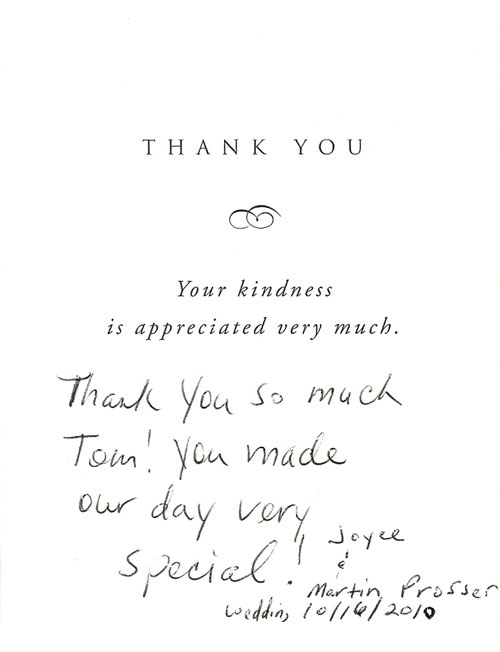 THANK YOU
Your kindness
is appreciated very much.
Thank You so much
Tom! You made
our day very
special!
Joyce
&
Martin Prosser
Wedding 10/16/2010